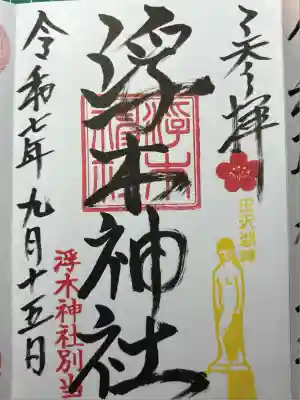 参拝
田沢湖畔
浮木神社
浮木神社別当
令和七年九月十五日